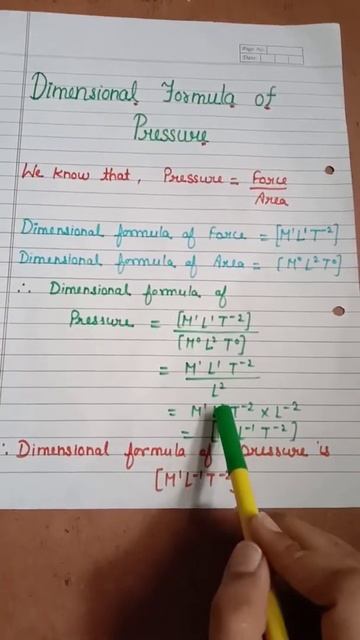 Page No.
Date
Dimensional Formula of
Pressure
We know that, Pressure = Force
Area
Dimensional formula of Force = [M¹L¹T⁻²]
Dimensional formula of Area = [M⁰L²T⁰]
∴ Dimensional formula of
Pressure = [M¹L¹T⁻²]
[M⁰L²T⁰]
= M¹L¹T⁻²
L²
= M¹ T⁻² × L⁻²
= [ L⁻¹T⁻²]
∴ Dimensional formula of pressure is
[M¹L⁻¹T⁻²